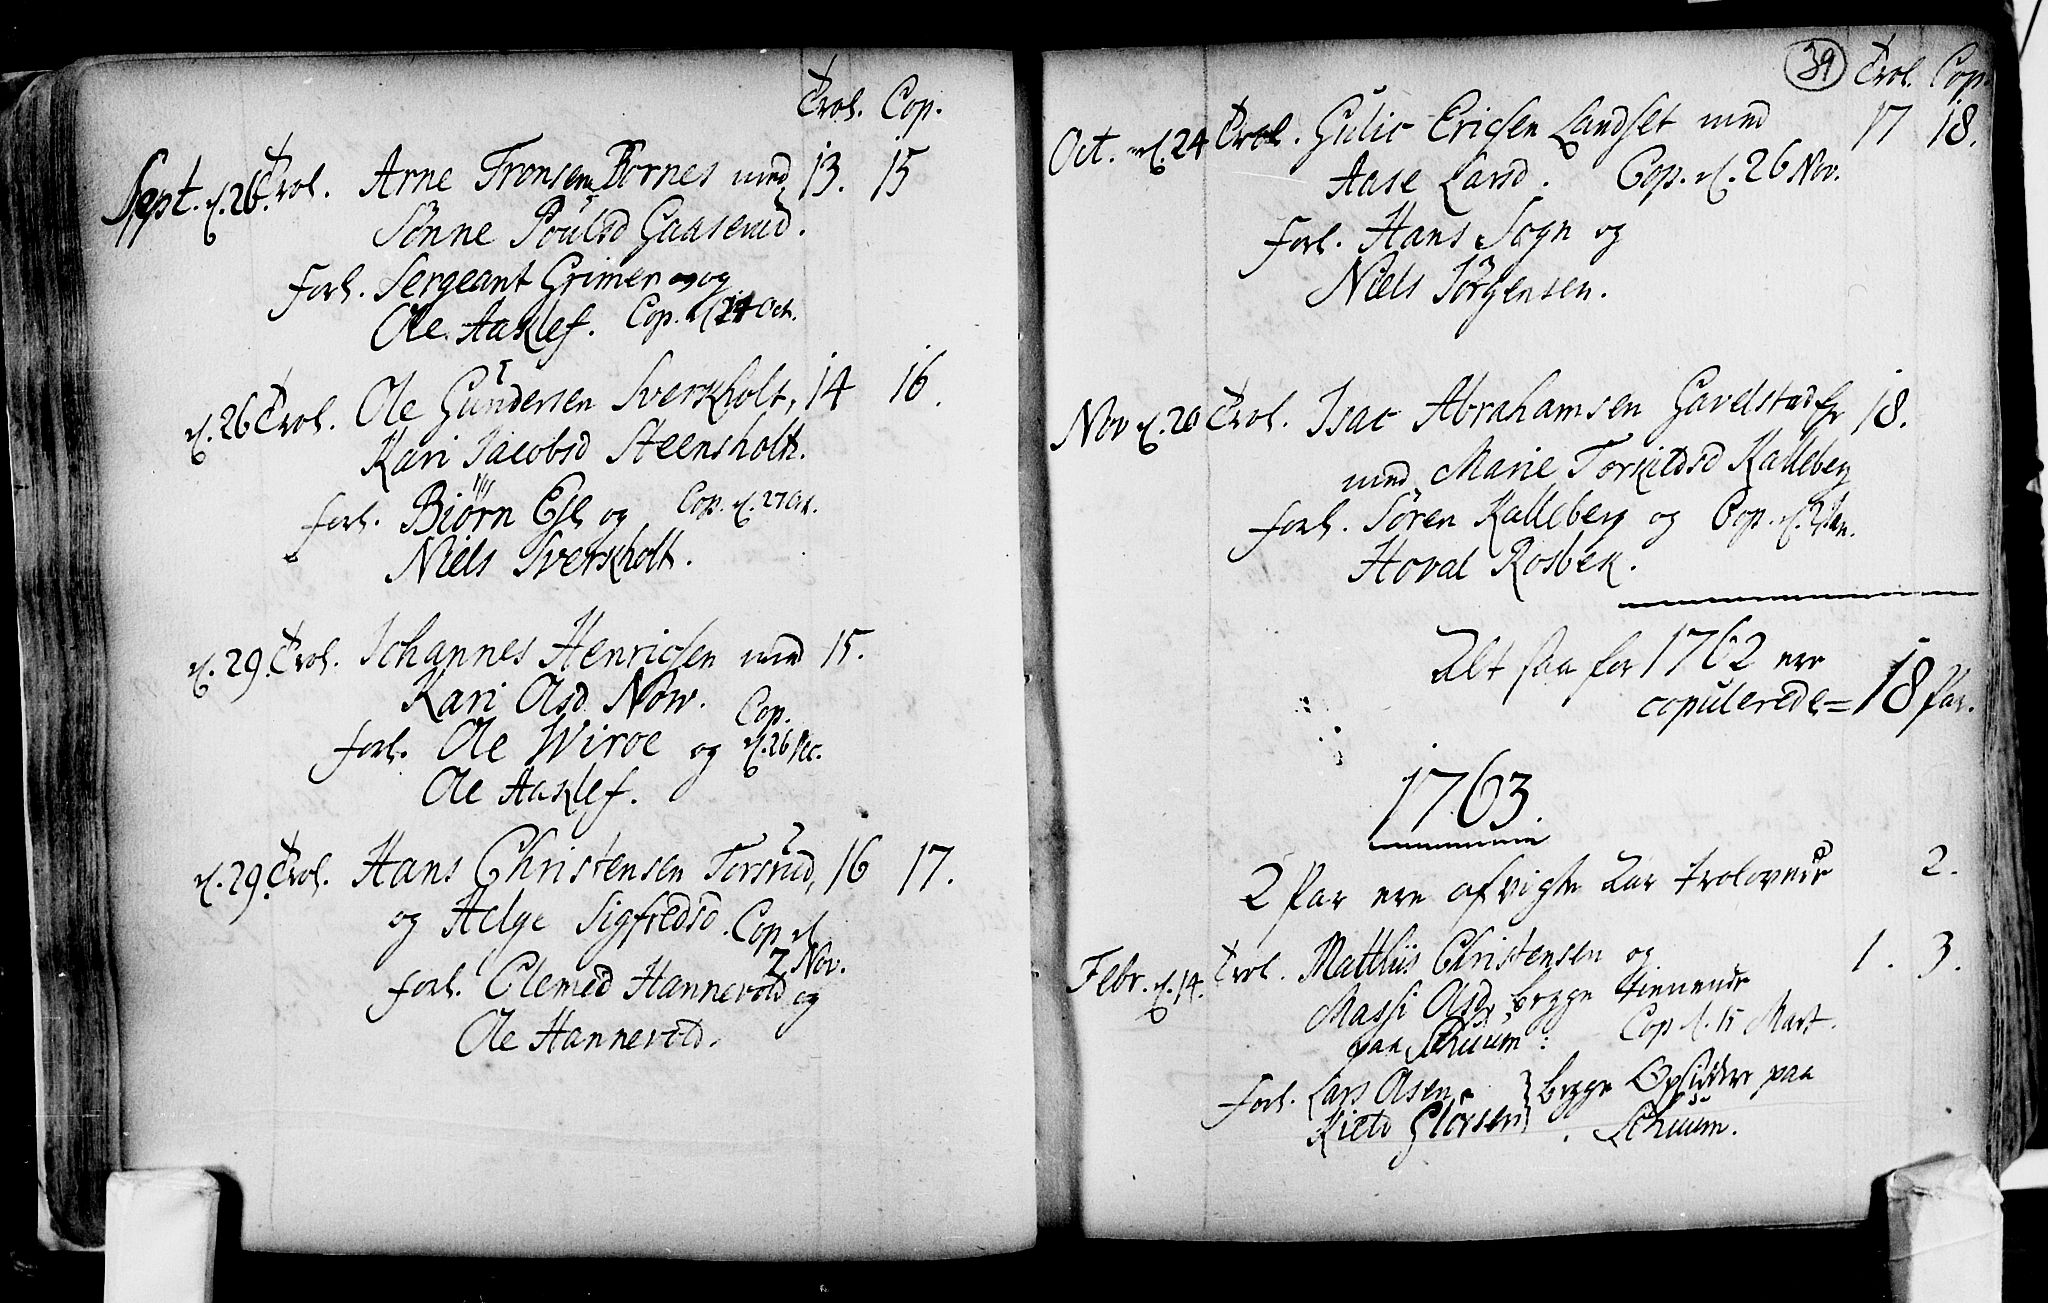 Trol. Cop.
Sept. d. 26. Trol. Arne Tronsen Bornes med 13. 15
Sönne Poulsd Gaaserud.
forl. Sergeant Grimen og
Ole Aaslef. Cop. d. 14 Oct.
d. 26 Trol. Ole Gundersen Sverkholt, 14 16.
Kari Jacobsd Steensholt.
forl. Biørn Esh og Cop. d. 27 Oct.
Niels Sverkholt.
d. 29. Trol. Johannes Henricsen med 15.
Kari Olsd Now.
Cop.
forl. Ole Wiroe og d. 26 Dec.
Ole Aaslef.
d. 29. Trol. Hans Christensen Torsrud, 16 17.
og Helge Sigfredsd. Cop. d.
2 Nov.
forl. Clemed Hannevold og
Ole Hannevold.
39 Trol. Cop.
Oct. d. 24 Trol. Gulic Ericsen Landset med 17 18.
Aase Larsd. Cop. d. 26 Nov.
forl. Hans Sogn og
Niels Jörgensen.
Nov d. 20 Trol. Isac Abrahamsen Gavelstad 18.
med Marie Torkildsd Kalleberg
forl. Søren Kalleberg og Cop. d.
Hoval Rosbek.
Alt saa for 1762 ere
copulerede = 18 Par.
1763
2 Par ere afvigte Aar trolovede 2.
Febr. d. 14. Trol. Matthiis Christensen og 1. 3.
Massi Olsd, begge tienende
paa Schuum: Cop d. 15 Mart.
forl. Lars Olsen } begge Opsiddere paa
Kield Glörsen } Schuum.